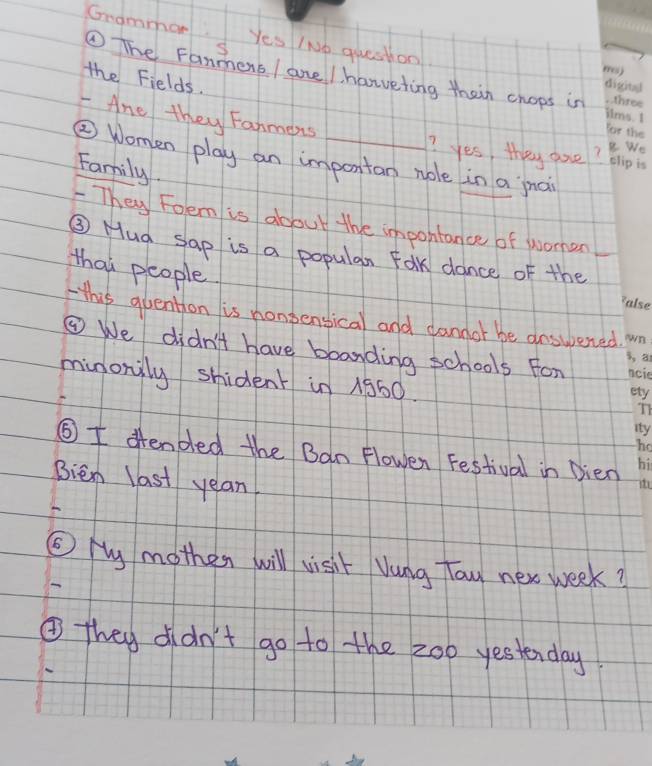 Grammar : Yes / No question
S
① The Farmers / are / harveting their crops in
the Fields.
- Are they Farmers ______? yes, they are?
② Women play an importan role in a jrai
Family.
- They Foem is about the importance of women
③ Mua sap is a popular Folk dance of the
thai people.
- this quention is nonsensical and cannot be answered.
④ We didn't have boarding schools for
minorily shident in 1950.
-
⑤ I attended the Ban Flower Festival in Dien
Biên last year.
-
⑥ My mother will visit Vung Tau nex week?
-
⑦ They didn't go to the zoo yesterday.
-
digital
three
ilms. I
For the
g. We
clip is
alse
wn
ety